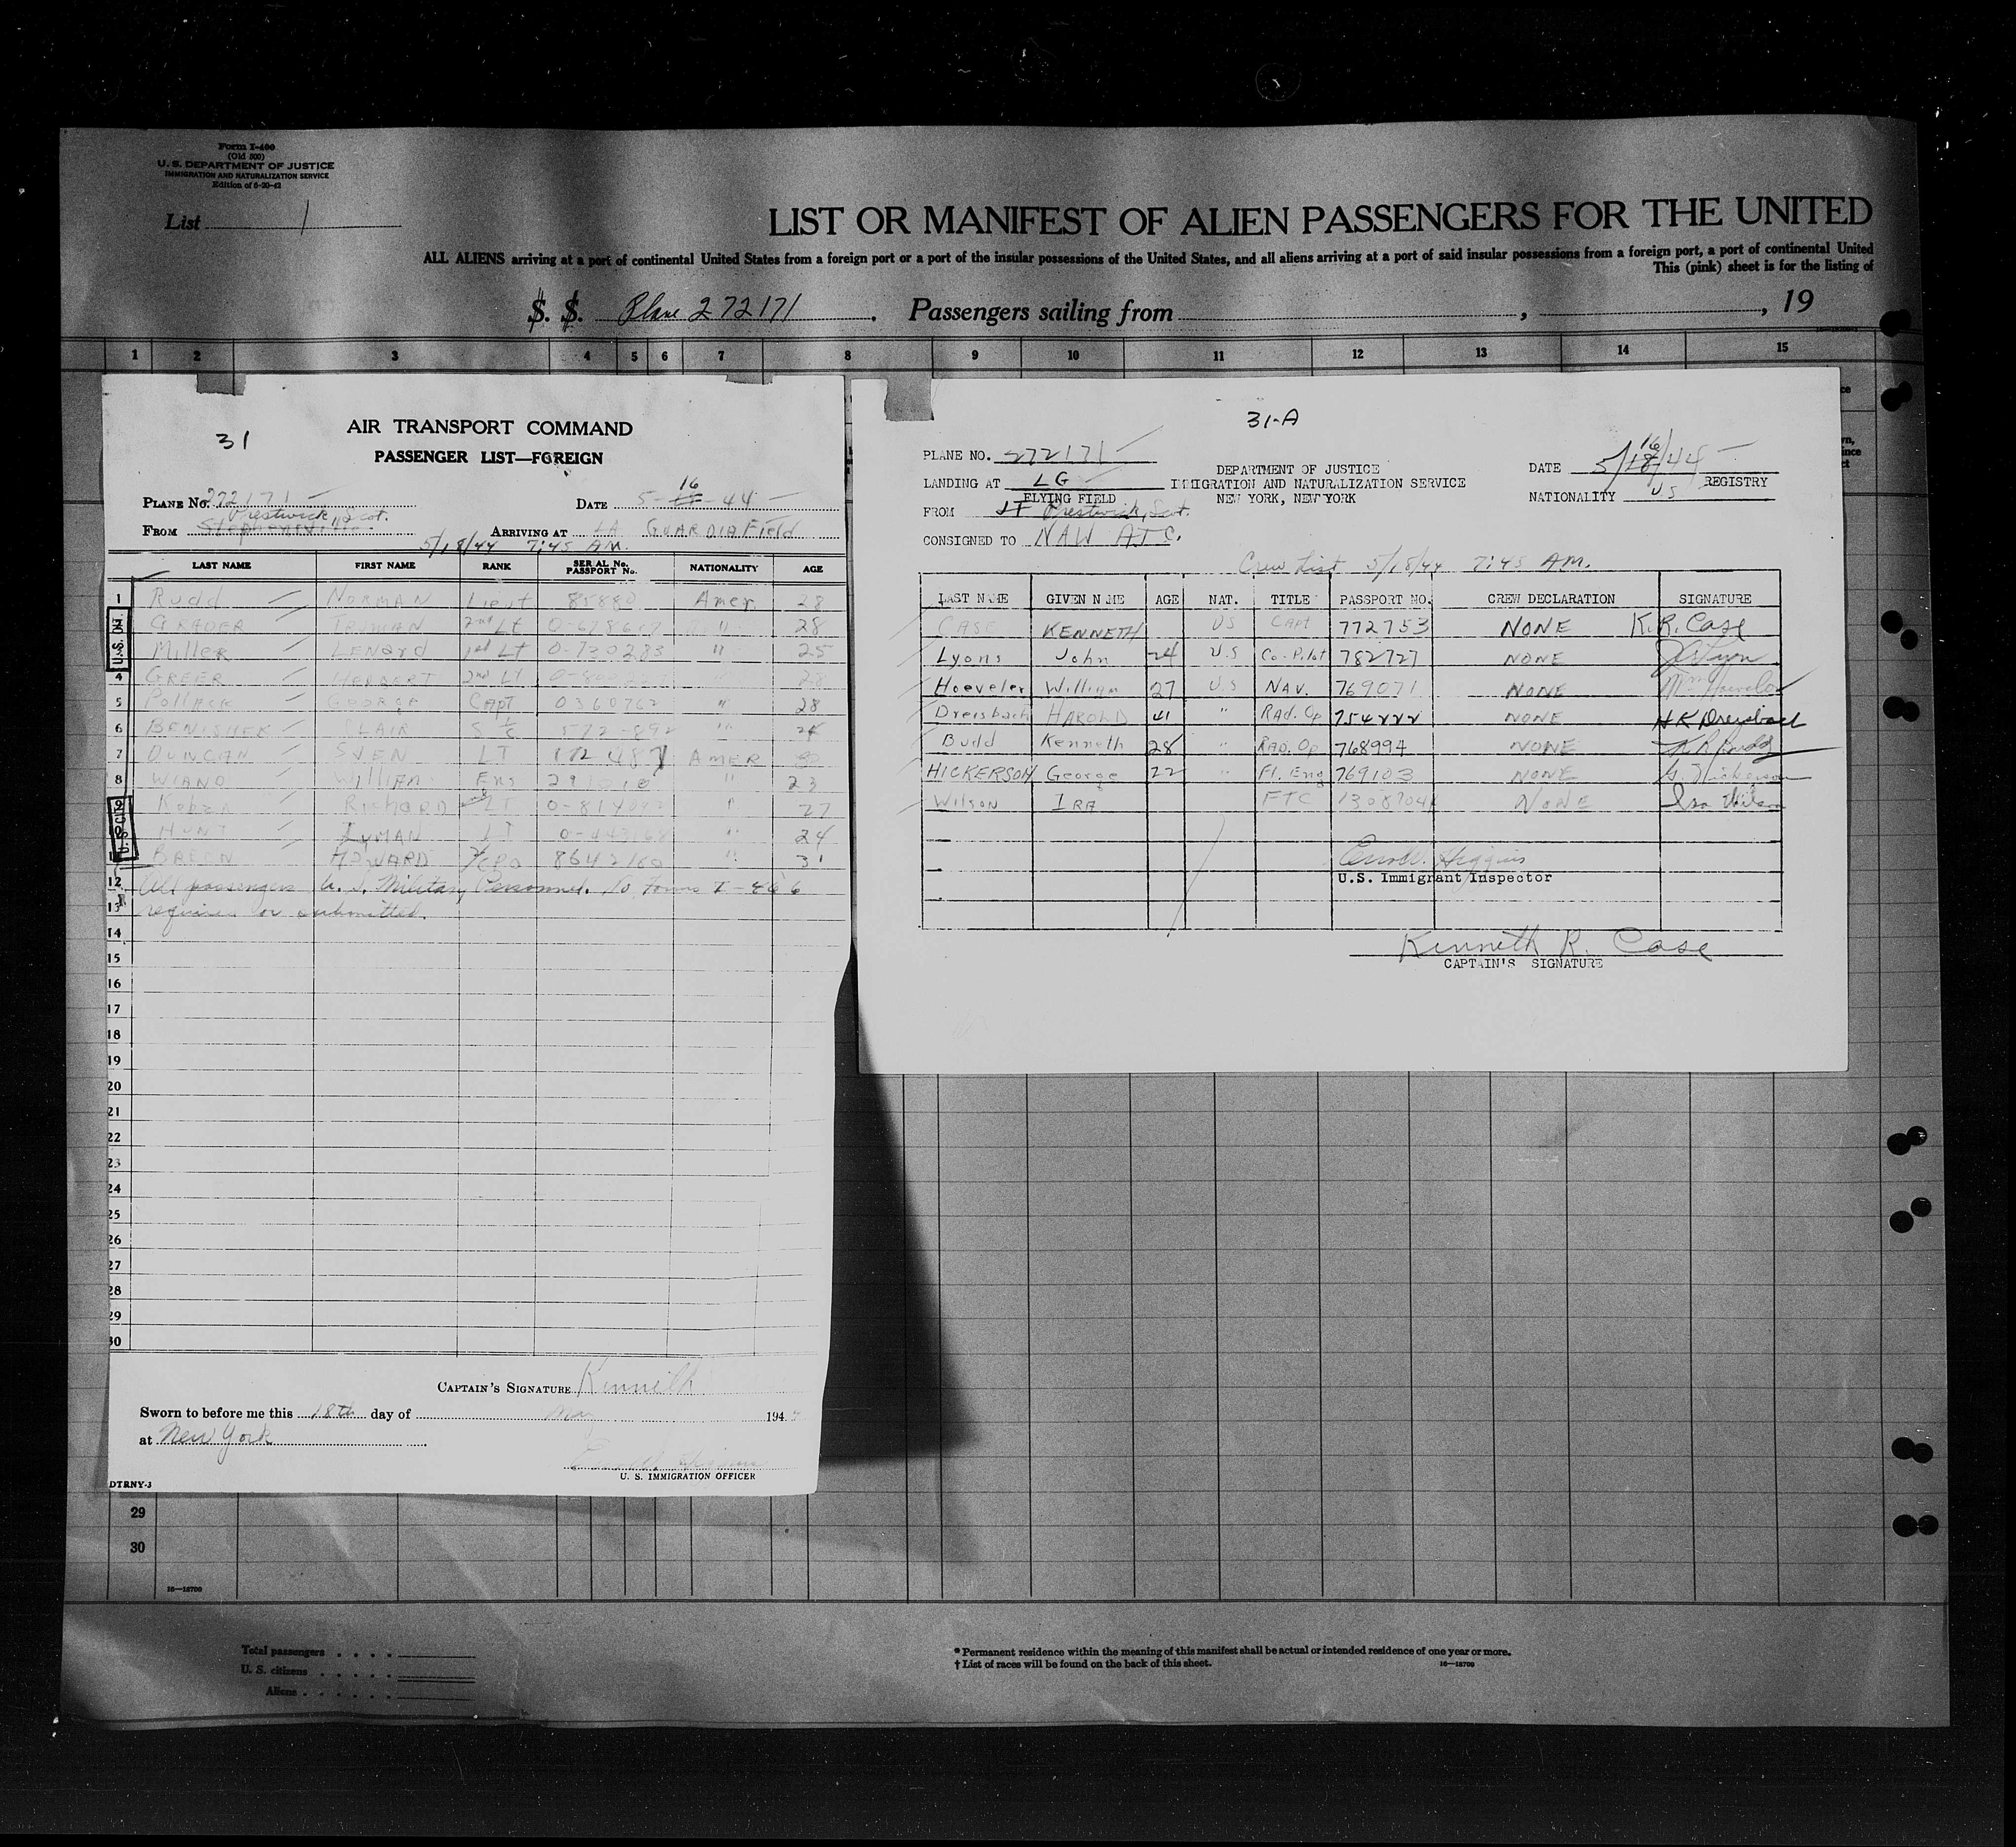 Form I-400
(Old 500)
U. S. DEPARTMENT OF JUSTICE
IMMIGRATION AND NATURALIZATION SERVICE
Edition of 6-20-42
List 1
LIST OR MANIFEST OF ALIEN PASSENGERS FOR THE UNITED
ALL ALIENS arriving at a port of continental United States from a foreign port or a port of the insular possessions of the United States, and all aliens arriving at a port of said insular possessions from a foreign port, a port of continental United
This (pink) sheet is for the listing of
S. S. Plane 272171. Passengers sailing from , , 19
1 2 3 4 5 6 7 8 9 10 11 12 13 14 15
31
AIR TRANSPORT COMMAND
PASSENGER LIST—FOREIGN
PLANE No. 272171 DATE 5-16-44
Prestwick, Scot.
FROM ARRIVING AT LA GUARDIA Field
5/18/44 7:45 AM.
LAST NAME FIRST NAME RANK SERIAL No. PASSPORT No. NATIONALITY AGE
1 Rudd NORMAN Lieut 85880 Amer. 28
GRADER TRUMAN 2nd Lt " 28
Miller LENard 1st Lt 0-730283 " 25
4 GREER HERBERT 2nd Lt
5 Pollack GEORGE CAPT 0360762 " 28
6 BENISHEK CLAIR 572-892 "
7 DUNCAN SVEN LT AMER
8 WIAND WILLIAM Ens "  23
Kobza RICHARD LT " 27
HUNT LYMAN LT " 24
HOWARD CPO 8642160 " 31
12 All passengers U. S. Military Personnel. No forms I-466
13 required or submitted.
14
15
16
17
18
19
20
21
22
23
24
25
26
27
28
29
30
CAPTAIN'S SIGNATURE Kenneth
Sworn to before me this 18th day of May 1944
at New York
U. S. IMMIGRATION OFFICER
DTRNY-3
31-A
PLANE NO. 272171 DATE 5/16/44
LANDING AT LG
FLYING FIELD
DEPARTMENT OF JUSTICE
IMMIGRATION AND NATURALIZATION SERVICE
NEW YORK, NEW YORK
NATIONALITY US REGISTRY
FROM Prestwick, Scot.
CONSIGNED TO NAW ATC.
Crew List 5/18/44 7:45 AM.
LAST NAME GIVEN NAME AGE NAT. TITLE PASSPORT NO. CREW DECLARATION SIGNATURE
CASE KENNETH US CAPt 772753 NONE K.R. Case
Lyons John 24 U.S Co-Pilot 782727 NONE
Hoeveler William 27 U.S NAV. 769071 NONE Wm Hoeveler
Dreisbach HAROLD 41 " RAd. Op 754222 NONE H K Dreisbach
Budd Kenneth 28 " RAD. Op 768994 NONE K R Budd
HICKERSON George 22 " Fl. Eng 769103 NONE G. Hickerson
Wilson IRA FTC NONE Ira Wilson
U.S. Immigrant Inspector
Kenneth R. Case
CAPTAIN'S SIGNATURE
29
30
16—18700
Total passengers
U. S. citizens
Aliens
* Permanent residence within the meaning of this manifest shall be actual or intended residence of one year or more.
† List of races will be found on the back of this sheet. 16—18700